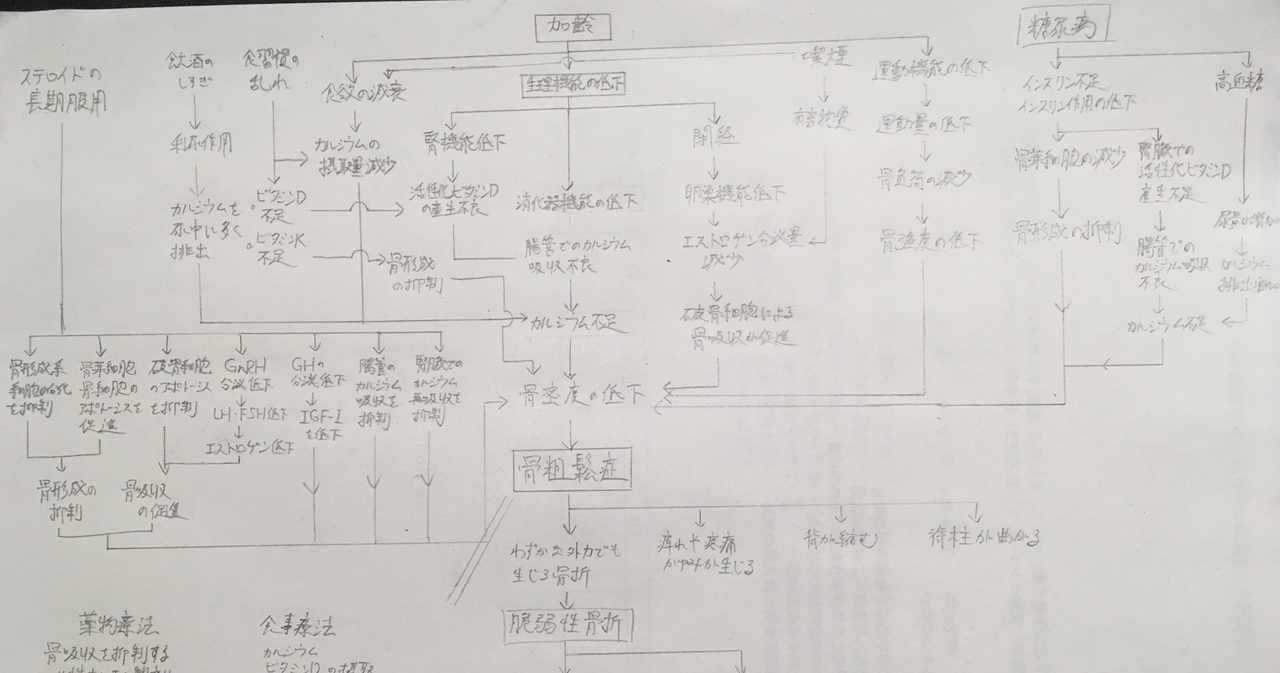 加齢
糖尿病
ステロイドの
長期服用
飲酒の
しすぎ
食習慣の
乱れ
食欲の減衰
生理機能の低下
喫煙
運動機能の低下
インスリン不足
インスリン作用の低下
高血糖
利尿作用
カルシウムの
摂取量減少
腎機能低下
閉経
運動量の低下
骨芽細胞の減少
腎臓での
活性化ビタミンD
産生不足
カルシウムを
尿中に多く
排出
ビタミンD
不足
ビタミンK
不足
活性化ビタミンD
の産生不良
消化器機能の低下
卵巣機能低下
骨負荷の減少
骨形成の抑制
骨形成
の抑制
腸管でのカルシウム
吸収不良
エストロゲン分泌量
減少
骨強度の低下
腸管での
カルシウム吸収
不良
カルシウム不足
破骨細胞による
骨吸収が促進
カルシウム不足
骨形成系
細胞の分化
を抑制
骨芽細胞
骨細胞の
アポトーシスを
促進
破骨細胞
のアポトーシス
を抑制
GnRH
分泌低下
LH・FSH低下
エストロゲン低下
GHの
分泌低下
IGF-1
を低下
腸管の
カルシウム
吸収を
抑制
腎臓での
カルシウム
再吸収を
抑制
骨密度の低下
骨形成の
抑制
骨吸収
の促進
骨粗鬆症
わずかな外力でも
生じる骨折
痺れや疼痛
が生じる
背が縮む
脊柱が曲がる
脆弱性骨折
薬物療法
骨吸収を抑制する
食事療法
カルシウム
ビタミンDの摂取